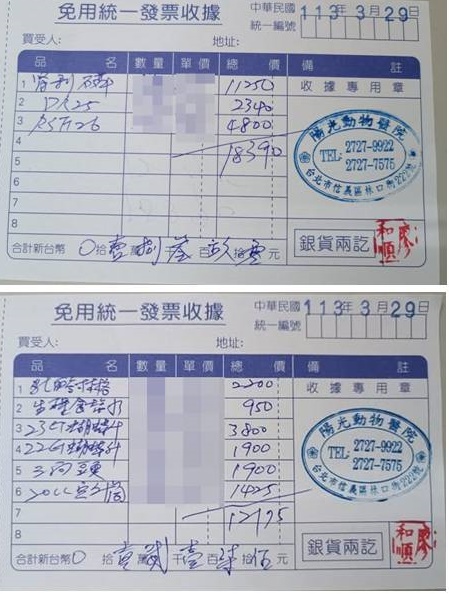 免用統一發票收據
中華民國 113年3月29日
統一編號
買受人: 地址:
品名 數量 單價 總價 備註
1 腎利 11250
收據專用章
2 2340
3 4800
4 18390
5
6
7
8
陽光動物醫院
TEL: 2727-9922
2727-7575
台北市信義區林口街222號
合計新台幣 0拾壹萬捌仟參百玖拾零元
銀貨兩訖
廖和順
免用統一發票收據
中華民國 113年3月29日
統一編號
買受人: 地址:
品名 數量 單價 總價 備註
1 2200
收據專用章
2 生理食鹽水 950
3 23G蝴蝶針 3800
4 22G蝴蝶針 1900
5 1900
6 20CC空針筒 1425
7 12175
8
陽光動物醫院
TEL: 2727-9922
2727-7575
台北市信義區林口街222號
合計新台幣 0拾壹萬貳千壹百柒拾伍元
銀貨兩訖
廖和順